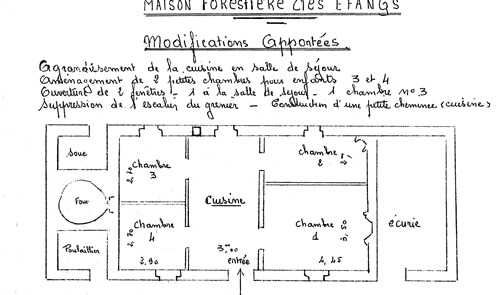 MAISON FORESTIERE des ETANGS
Modifications Apportées.
Agrandissement de la cuisine en salle de séjour
Aménagement de 2 petites chambres pour enfants 3 et 4
Ouverture de 2 fenêtres - 1 à la salle de séjour - 1 chambre n° 3
Suppression de l'escalier du grenier - Construction d'une petite cheminée (cuisine)
Soue
Four
Poulailler
Chambre 3
Chambre 4
2,70
2,90
Cuisine
3,00
entrée
Chambre 2
Chambre 1
3,50
4,45
écurie